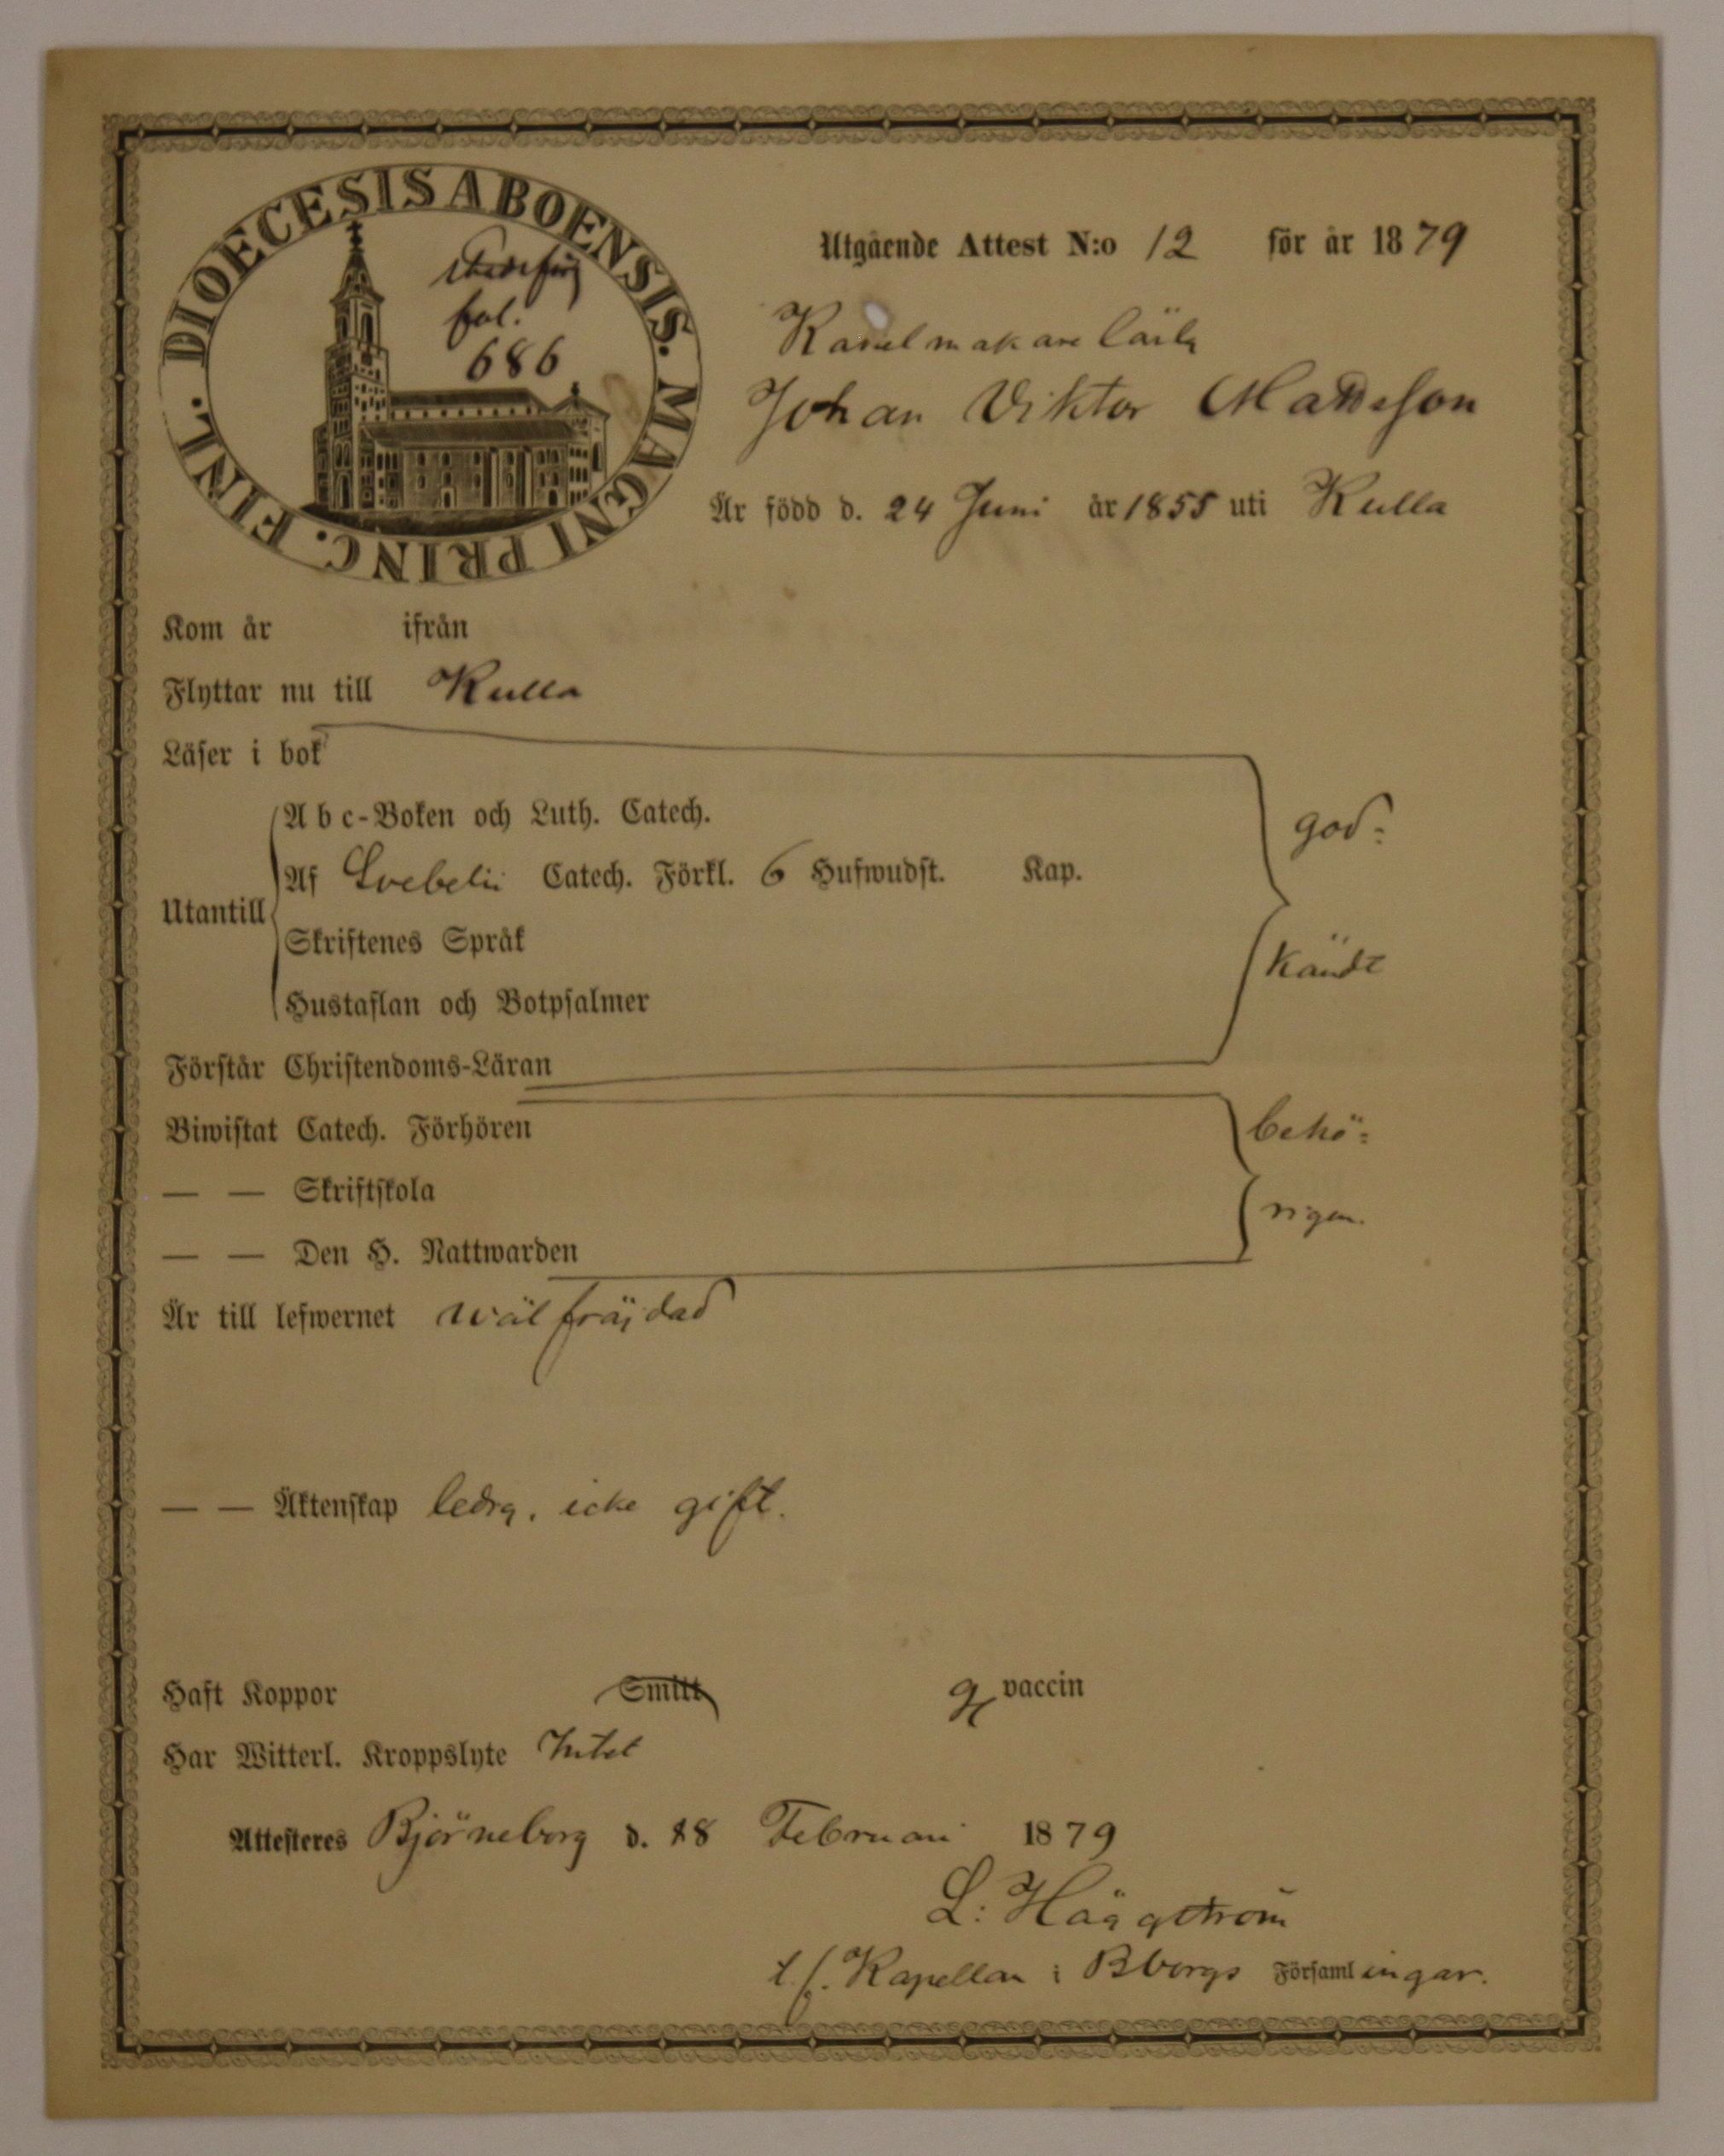 DIOECESIS ABOENSIS. MAGNI PRINC. FINL.
fol.
686
Utgående Attest N:o 12 för år 1879
Johan Viktor Mattsson
Är född d. 24 Juni år 1855 uti Kulla
Kom år ifrån
Flyttar nu till Kulla
Läser i bok
A b c-Boken och Luth. Catech.
god=
Af Svebelii Catech. Förkl. 6 Hufwudst. Kap.
Utantill
Skriftenes Språk
kändt
Hustaflan och Botpsalmer
Förstår Christendoms-Läran
Biwistat Catech. Förhören
behö=
— — Skriftskola
rigen.
— — Den H. Nattwarden
Är till lefwernet wälfräjdad
— — Äktenskap ledig, icke gift.
Haft Koppor Smitt vaccin
Har Witterl. Kroppslyte Intet
Attesteres Björneborg d. 18 Februari 1879
L: Häggström
t.f. Kapellan i Bborgs Församlingar.